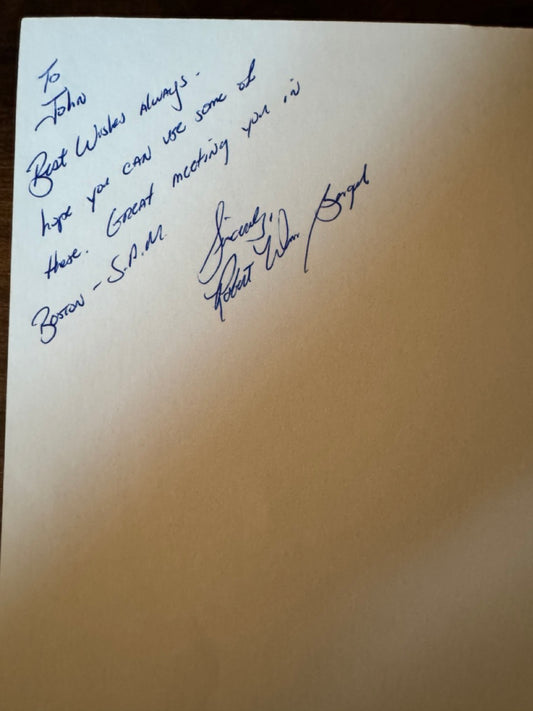 To
John
Best Wishes Always.
hope you can use some of
these. Great meeting you in
Boston - S.A.M.
Sincerely,
Robert Wm.